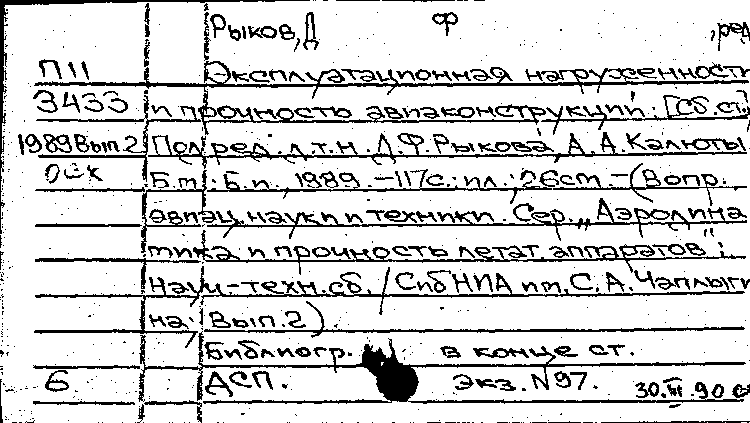 Рыков, Д Ф , ред
П11 Эксплуатационная нагруженность
3433 и прочность авиаконструкций: [Сб. ст.]
1989 Вып.2 Под ред. д.т.н. Д.Ф. Рыкова, А.А. Калюты
Б.м.: Б.и., 1989. -117с.: ил.; 26см. -(Вопр.
авиац. науки и техники. Сер. „Аэродина
мика и прочность летат. аппаратов";
Науч-техн. сб. / СибНИА им. С.А. Чаплыги
на; Вып.2).
Библиогр. в конце ст.
6 ДСП. Экз. N97. 30.III.90